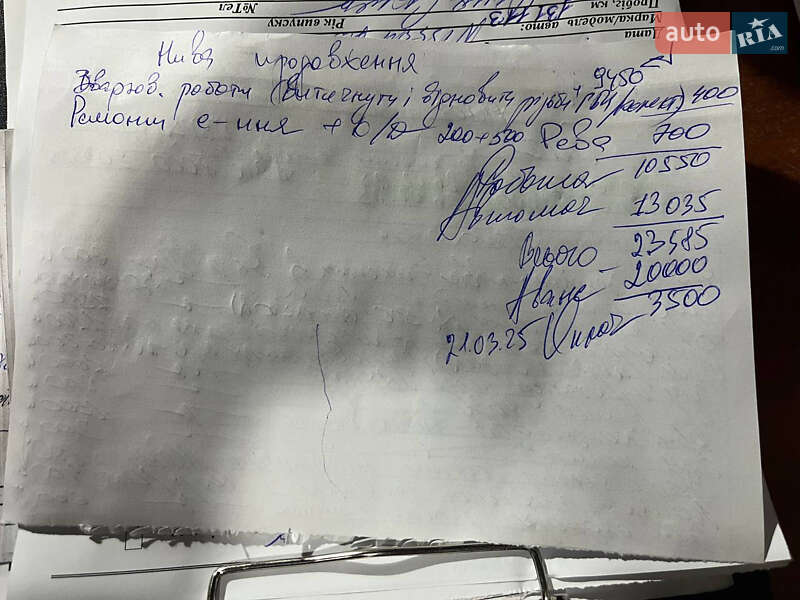 №Тел
Рік випуску
Пробіг, км
131113
Марка/модель авто:
Дата
auto RIA.com
Нива продовження
9450
Зварюв. роботи (витягнути і відновити різьби ГБЦ) 400
Ремонт е-ння + D/D 200+500 Рева 700
Робота 10550
Автомаг 13035
Всього 23585
Аванс - 20000
3500
21.03.25